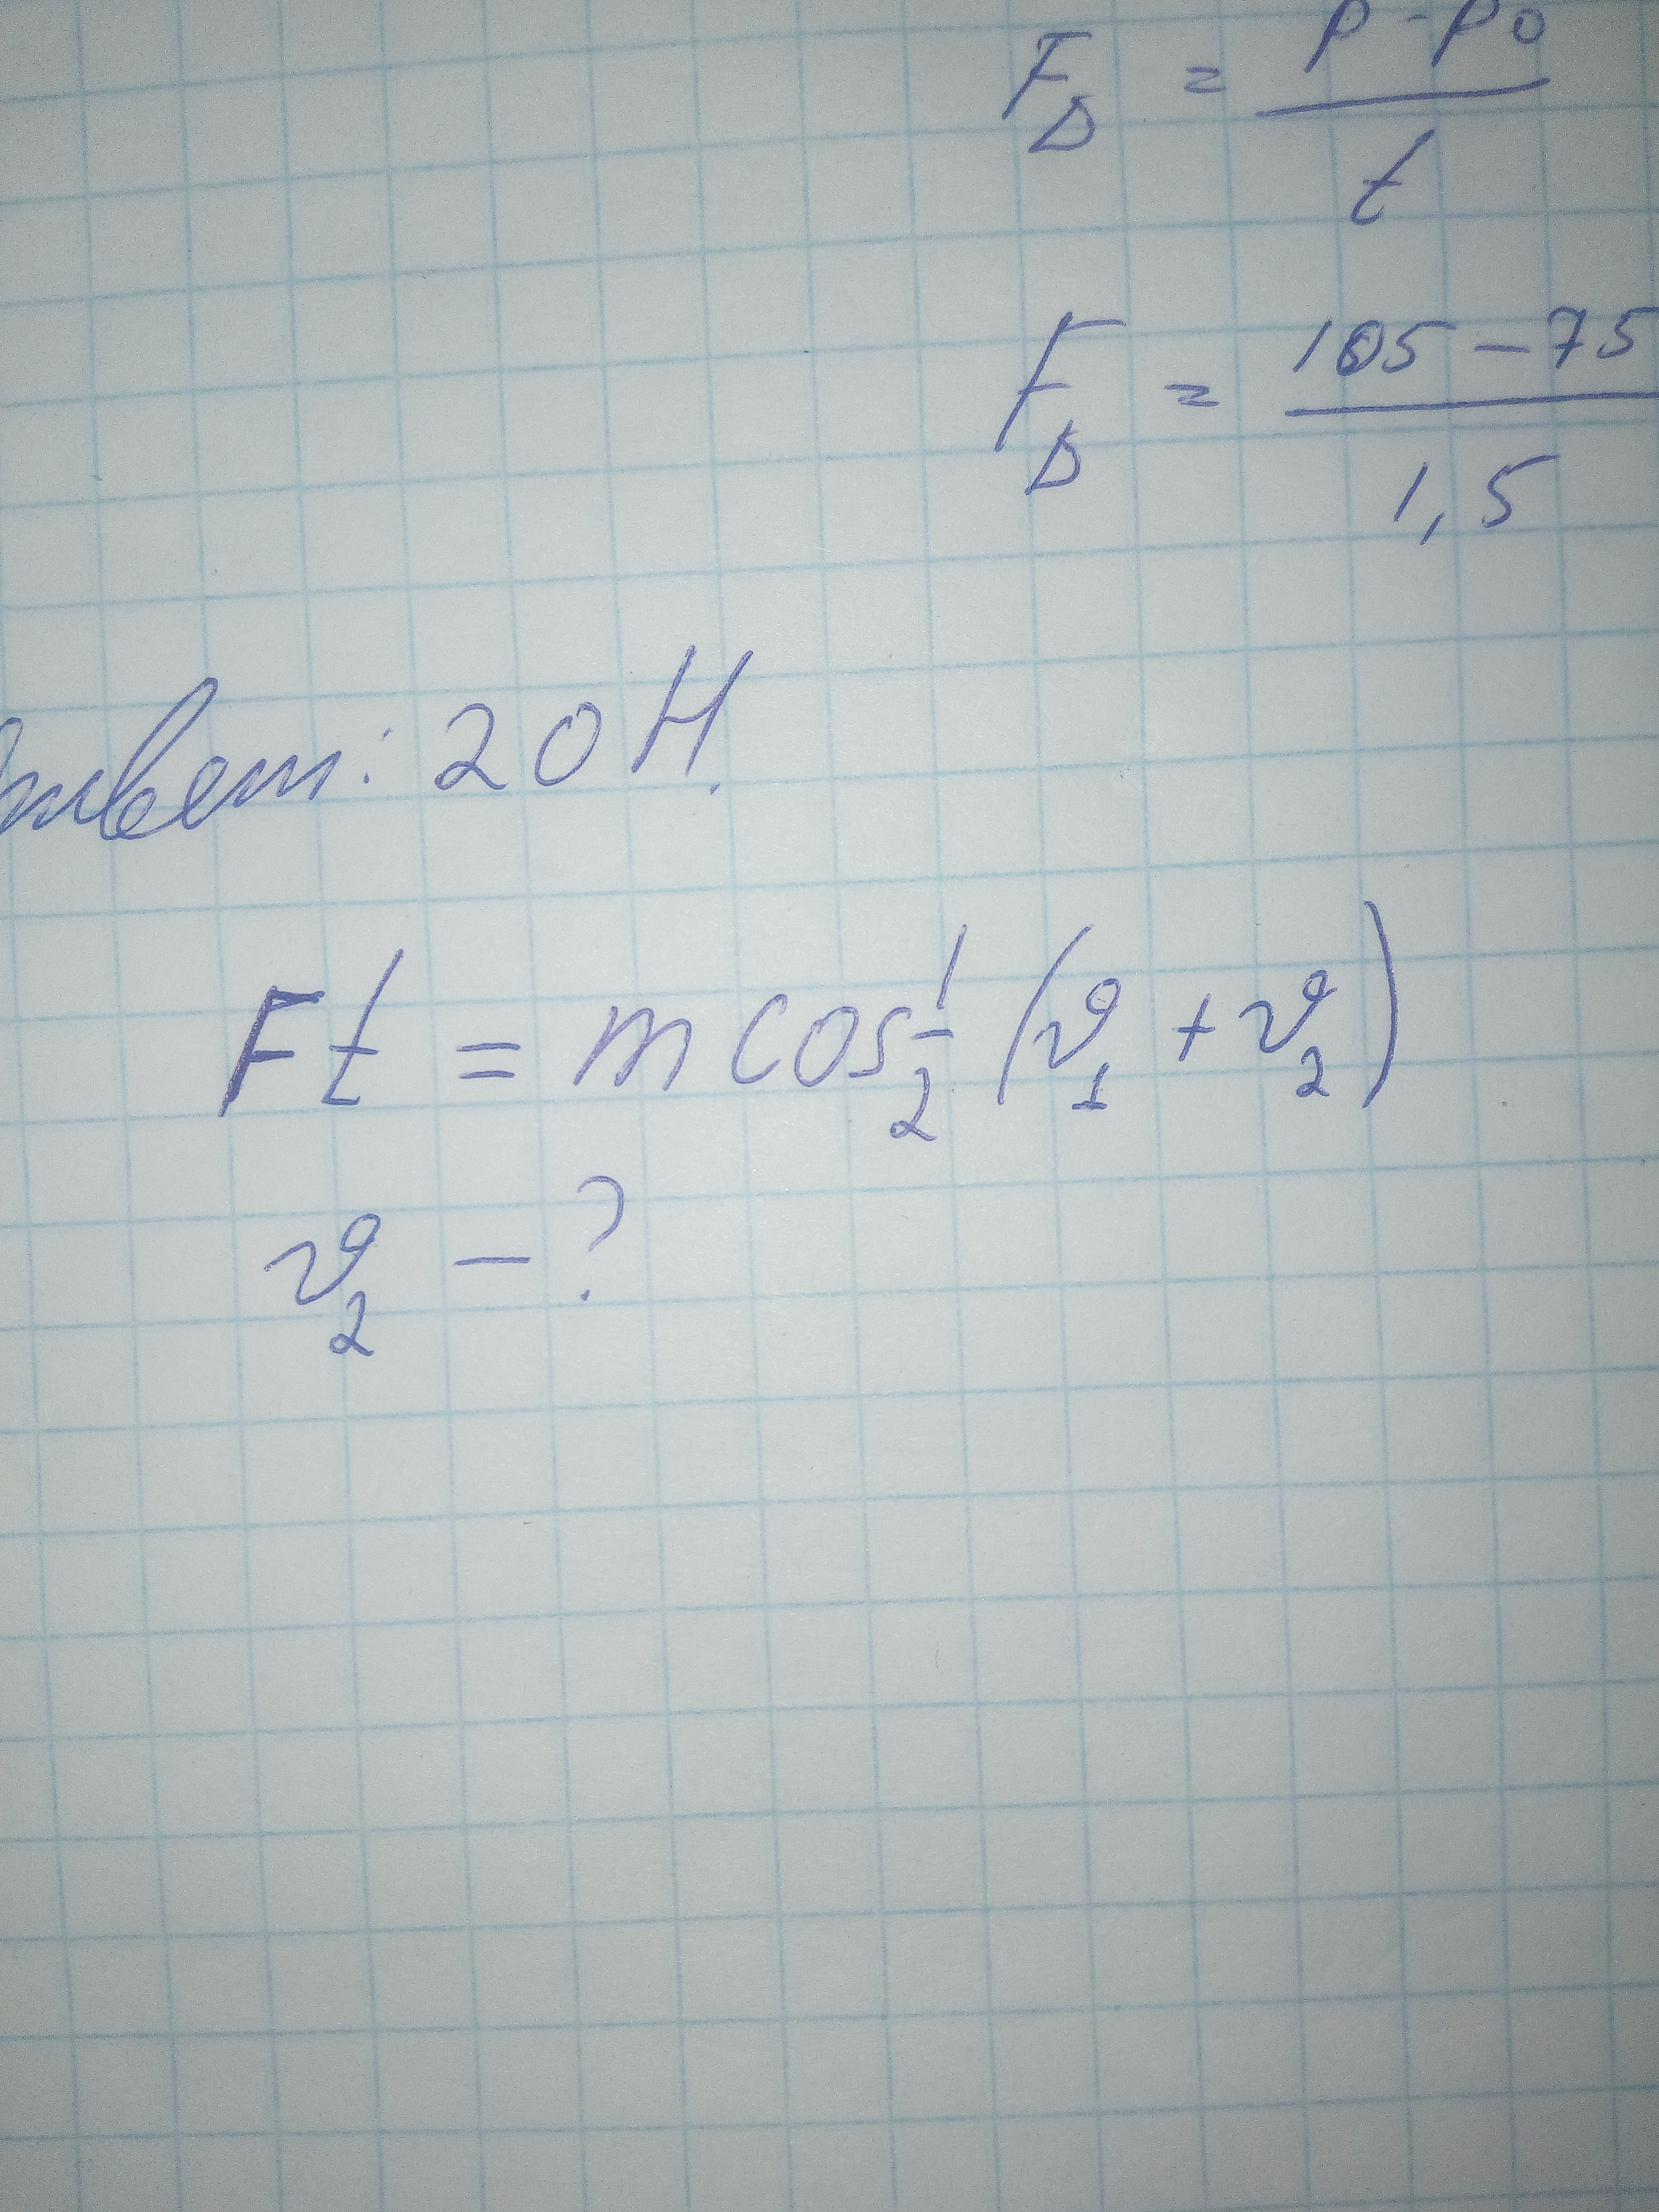 F_D = (p - p0) / t
F_D = (105 - 75) / 1,5
Ответ: 20 Н.
Ft = m cos 1/2 (v_1 + v_2)
v_2 - ?